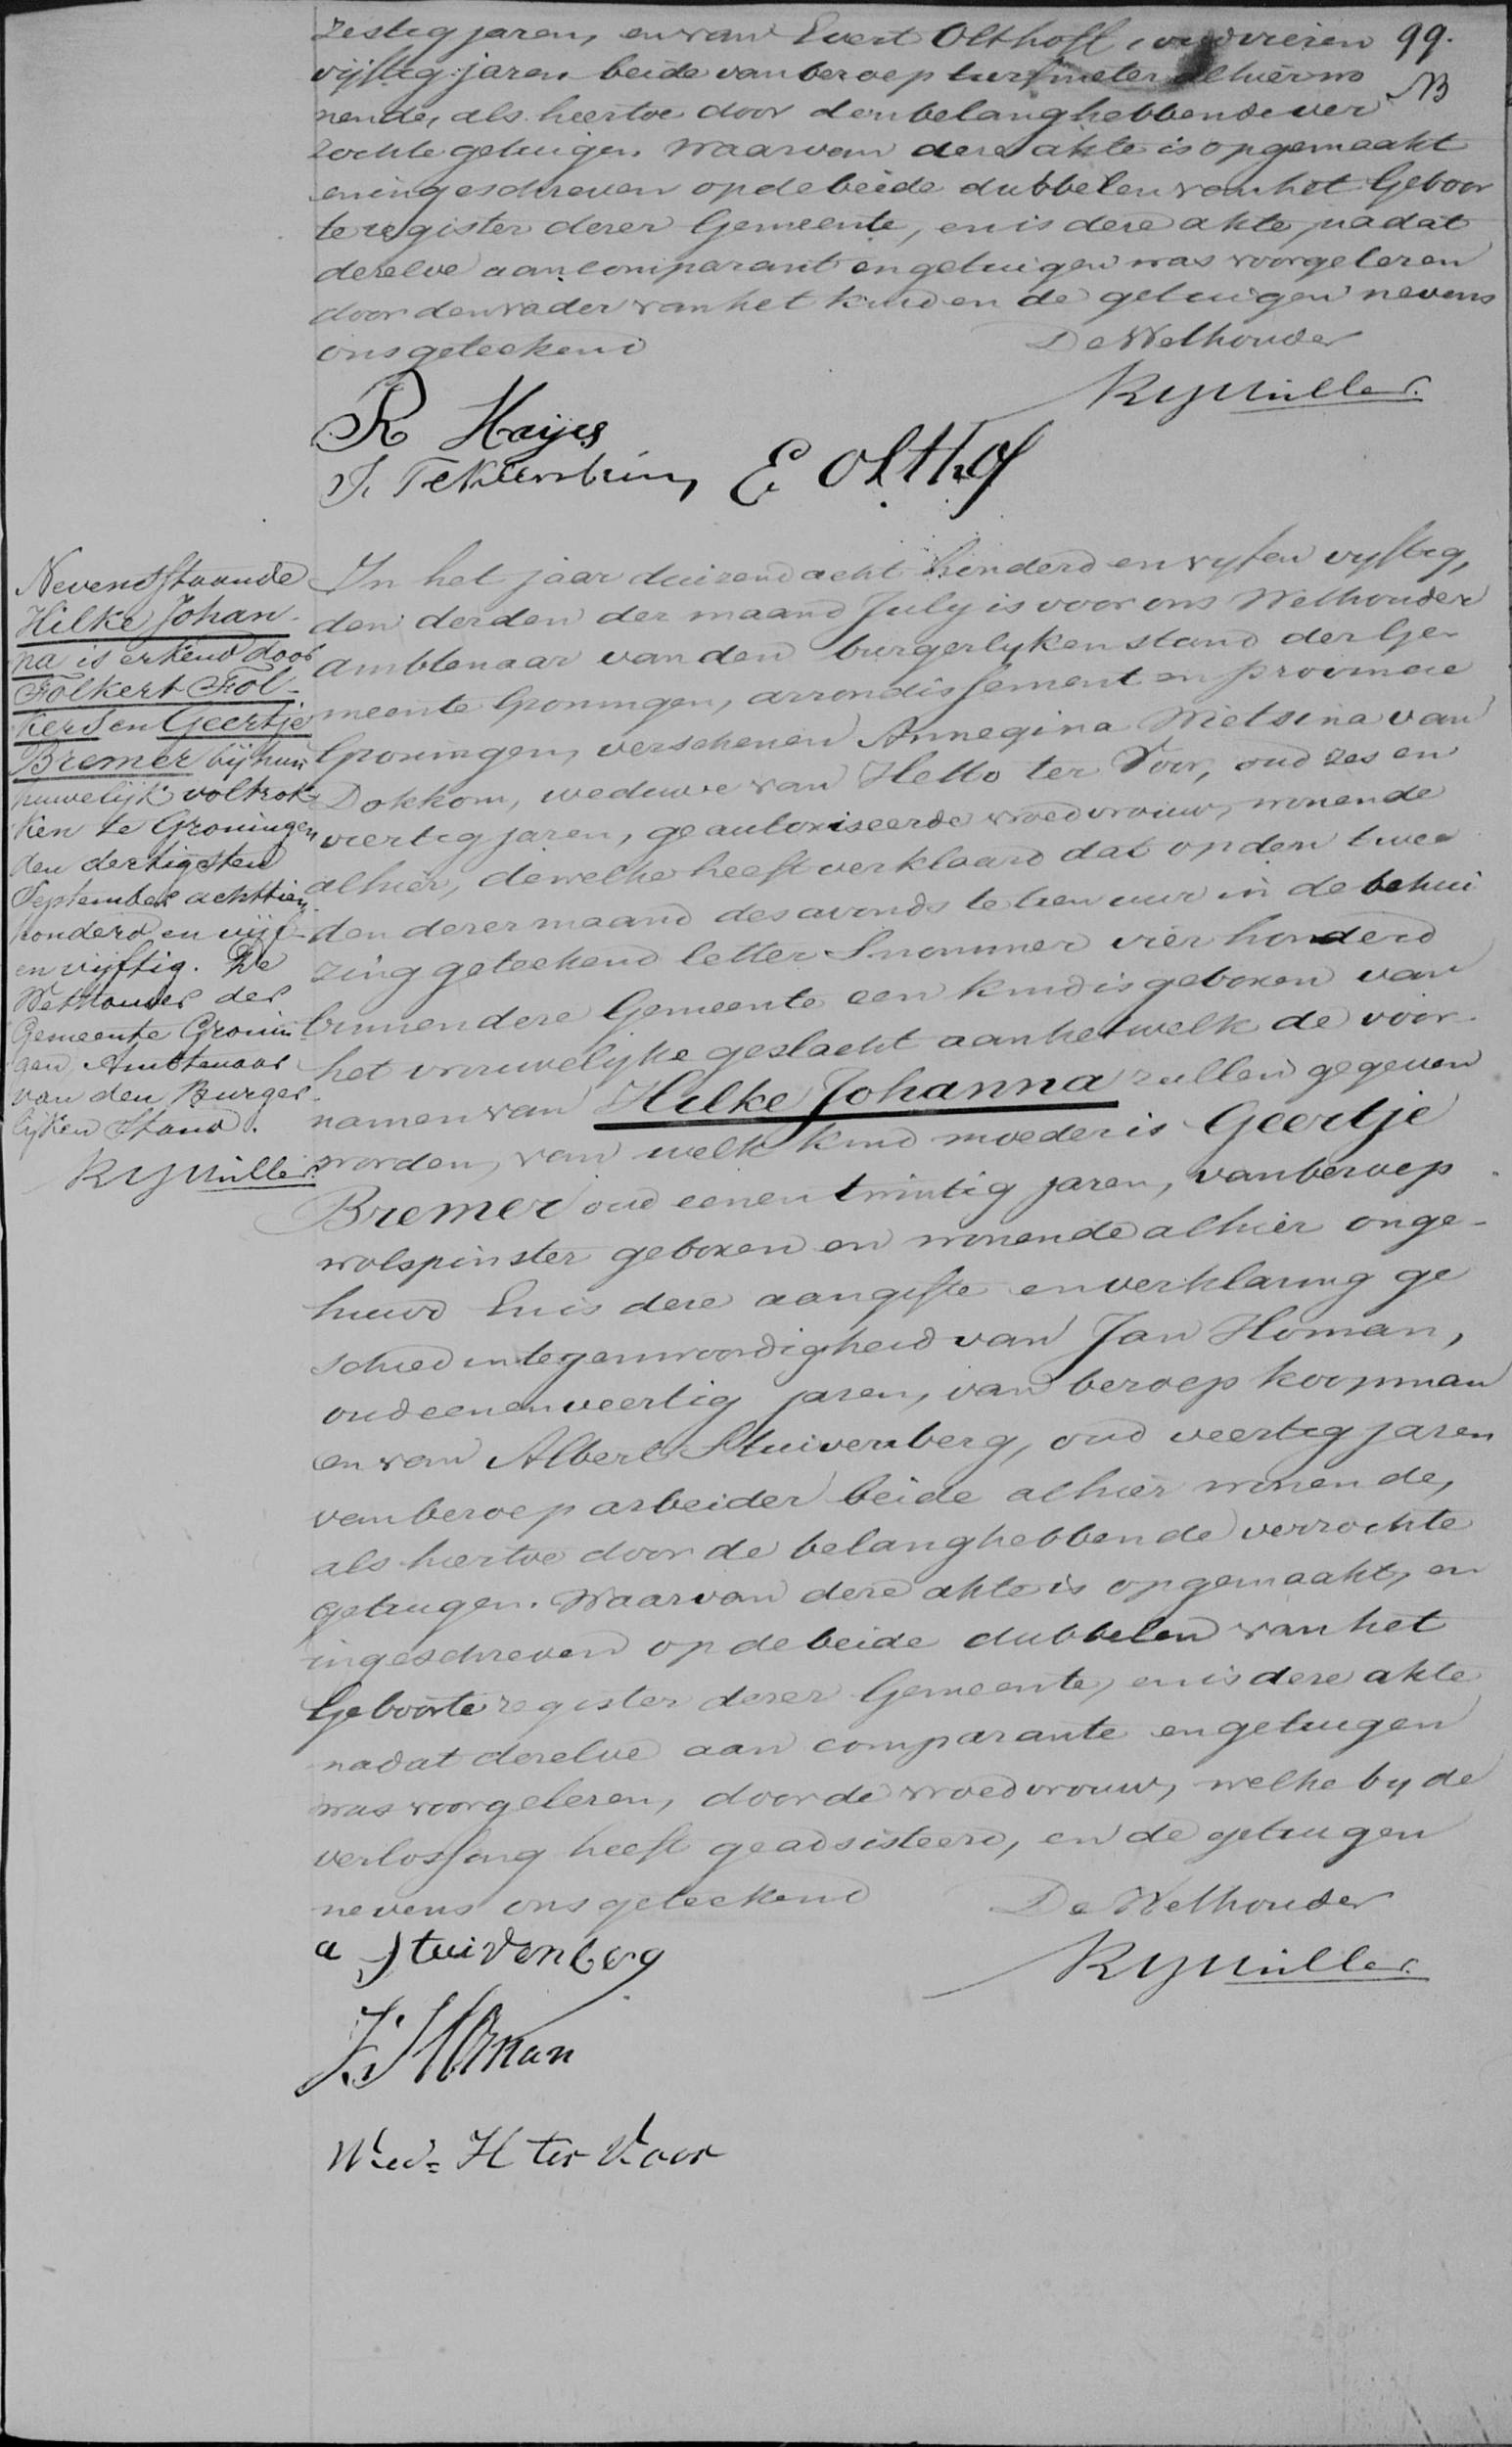 zestig jaren, en van Evert Olthoff, oud vier en 99.
vijftig jaren beide van beroep turfmeter alhier wo
nende, als hiertoe door den belanghebbende ver
zochte getuigen. Waarvan deze akte is opgemaakt
en ingeschreven op de beide dubbelen van het Geboor
te register dezer Gemeente, en is deze akte, nadat
dezelve aan comparant en getuigen was voorgelezen
door den vader van het kind en de getuigen nevens
ons geteekend
De Wethouder
R Haijes
E Olthof
Nevenstaande
Hilke Johan-
na is erkend door
Folkert Fol-
kers en Geertje
Bremer bij hun
huwelijk voltrok-
ken te Groningen
den dertigsten
September achttien
honderd en vijf-
en vijftig. De
Wethouder der
Gemeente Gronin
gen Ambtenaar
van den Burger-
lijken Stand.
In het jaar duizend acht honderd en vyf en vyftig,
den derden der maand July is voor ons Wethouder
ambtenaar van den burgerlyken stand der Ge-
meente Groningen, arrondissement en provincie
Groningen, verschenen Annegina Wietsina van
Dokkom, weduwe van Hello ter Voor, oud zes en
viertig jaren, geautoriseerde vroedvrouw, wonende
alhier, dewelke heeft verklaard dat op den twee
den dezer maand des avonds te tien uur in de behui
zing geteekend letter S nommer vier honderd
binnen deze Gemeente een kind is geboren van
het vrouwelijke geslacht aan hetwelk de voor-
namen van Hilke Johanna zullen gegeven
worden, van welk kind moeder is Geertje
Bremer oud een en twintig jaren, van beroep
wolspinster geboren en wonende alhier onge-
huwd En is deze aangifte en verklaring ge
schied in tegenwoordigheid van Jan Homan,
oud een en veertig jaren, van beroep koopman
en van Albert Stuivenberg, oud veertig jaren
van beroep arbeider beide alhier wonende,
als hiertoe door de belanghebbende verzochte
getuigen. Waarvan deze akte is opgemaakt, en
ingeschreven op de beide dubbelen van het
Geboorte register dezer Gemeente, en is deze akte
nadat dezelve aan comparante en getuigen
was voorgelezen, door de vroedvrouw, welke by de
verlossing heeft geadsisteerd, en de getuigen
nevens ons geteekend
De Wethouder
a Stuivenberg
J. Homan
Wed= H ter Voor